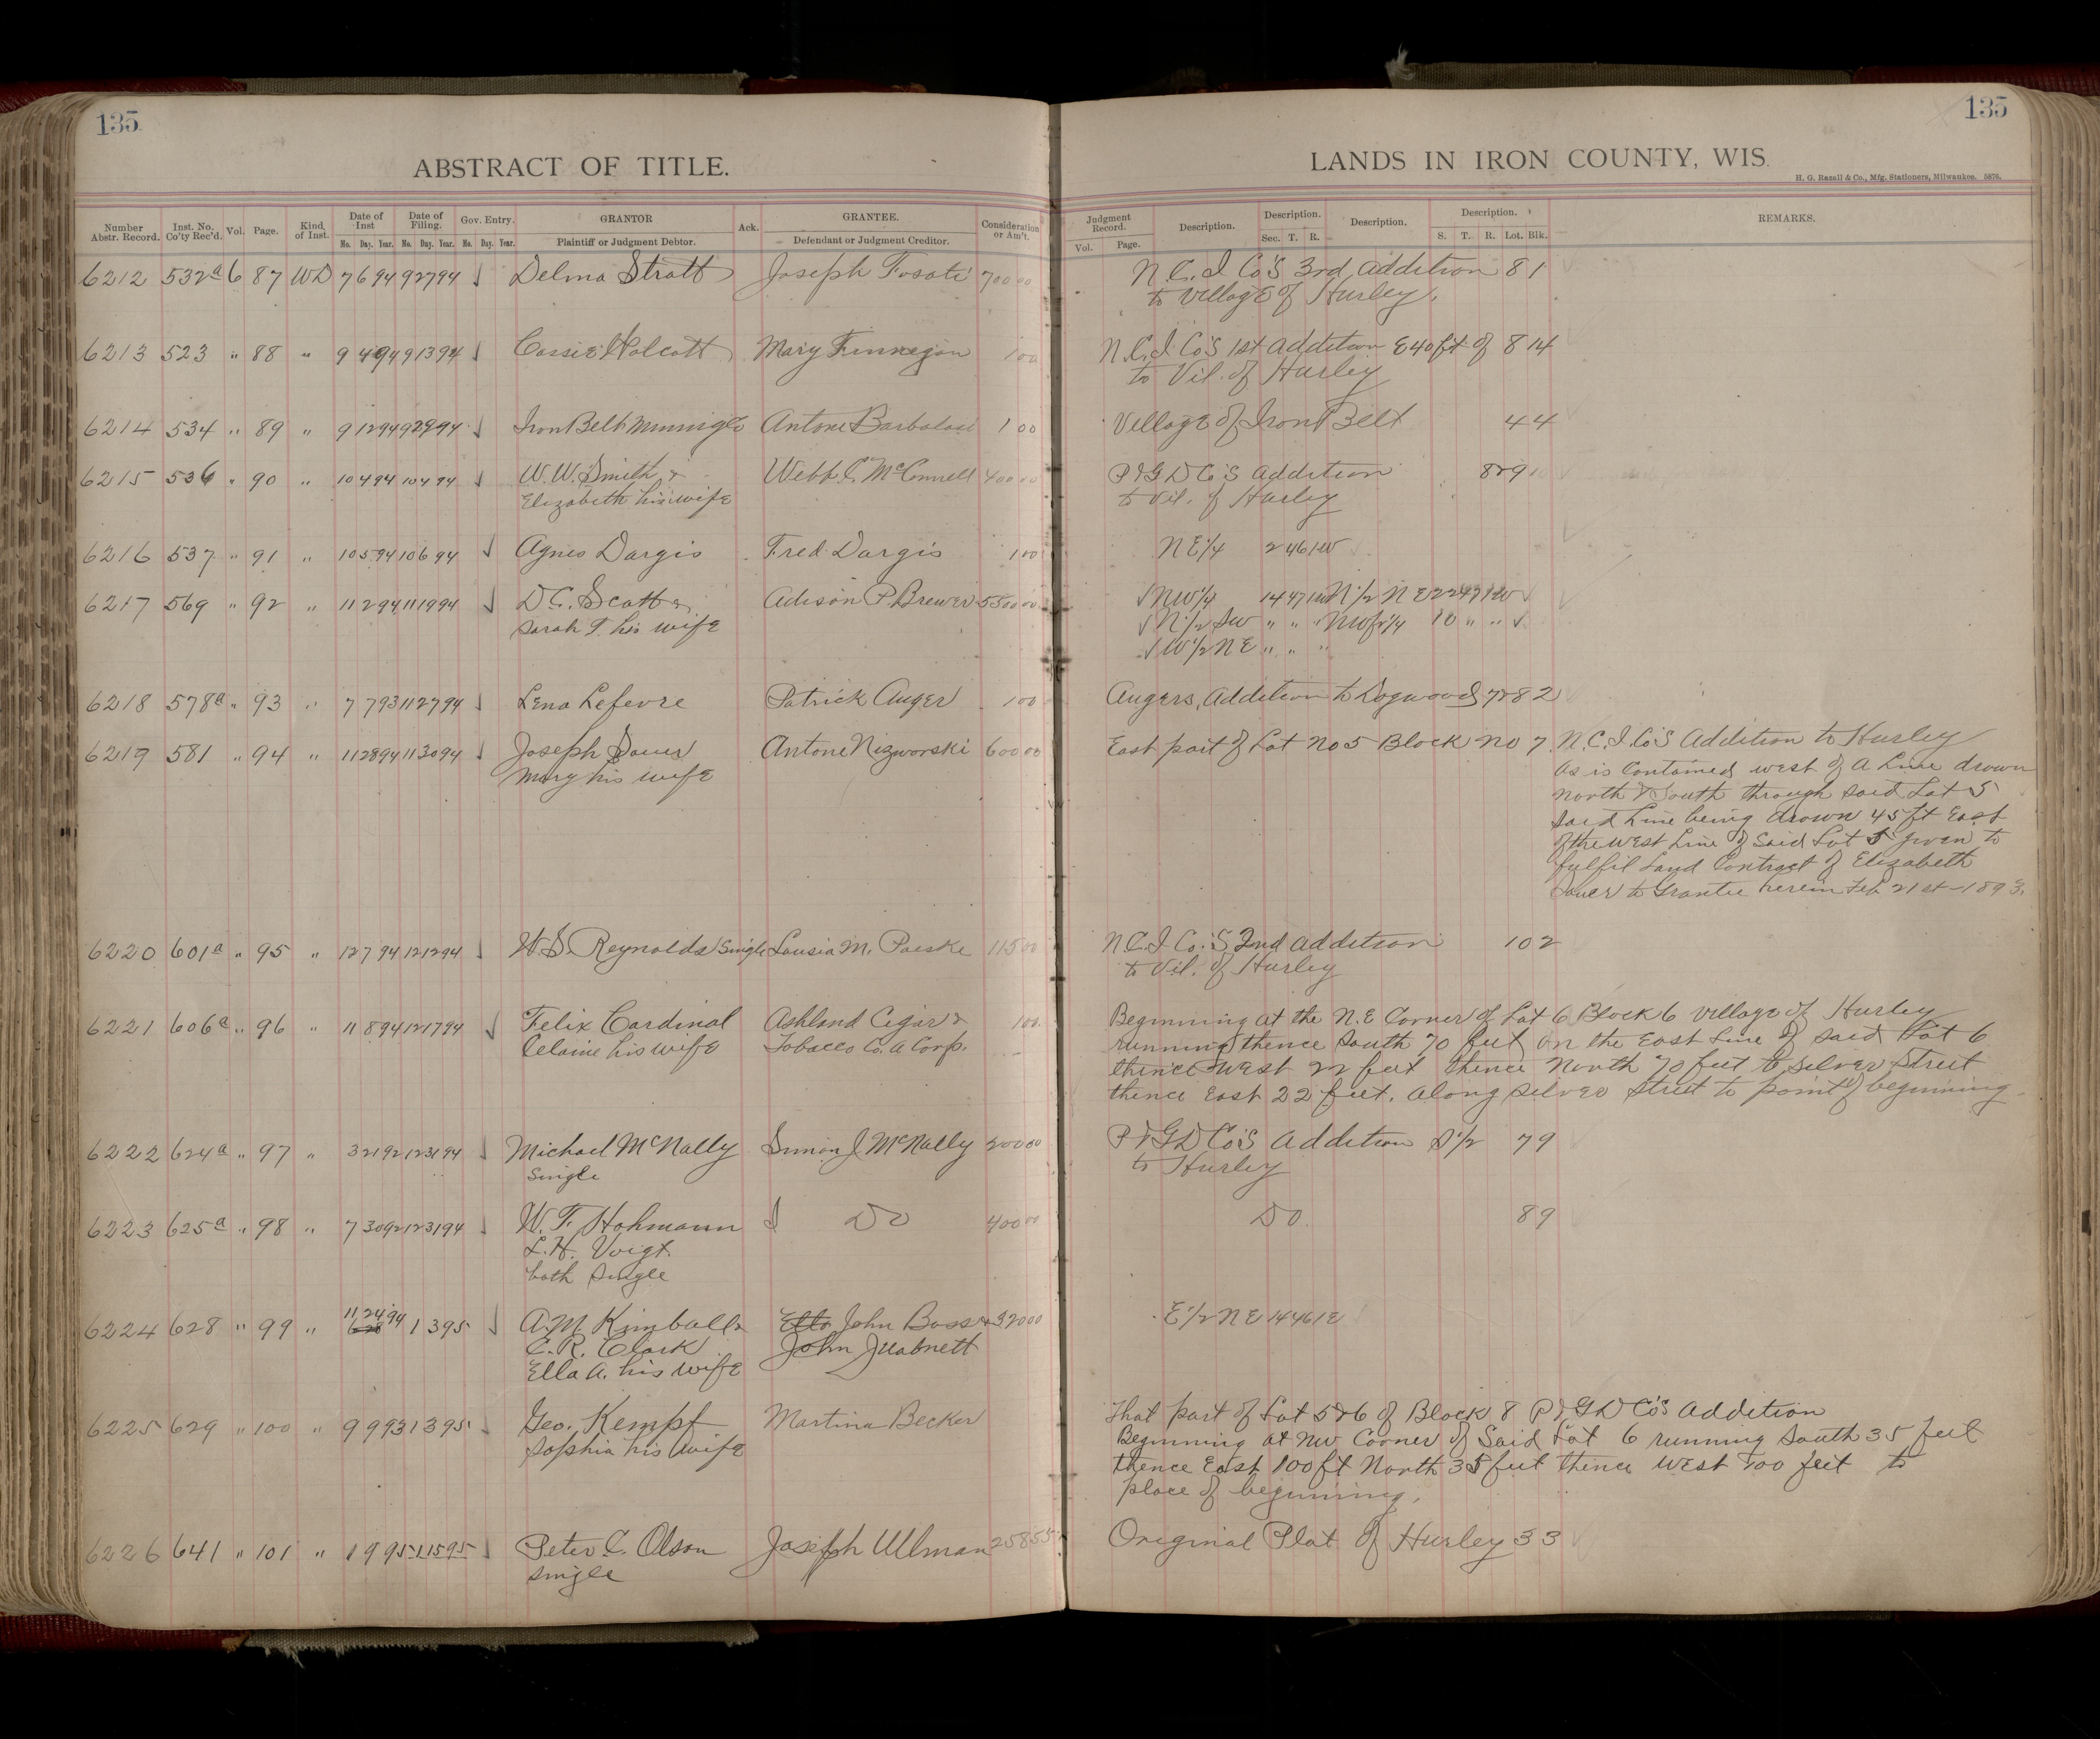 135
135
ABSTRACT OF TITLE.
LANDS IN IRON COUNTY, WIS.
H. G. Razall & Co., Mfg. Stationers, Milwaukee. 5876.
Number Abstr. Record. Inst. No. Co'ty Rec'd. Vol. Page. Kind of Inst. Date of Inst Mo. Day. Year. Date of Filing. Mo. Day. Year. Gov. Entry. Mo. Day. Year. GRANTOR Plaintiff or Judgment Debtor. Ack. GRANTEE. Defendant or Judgment Creditor. Consideration or Am't.
Judgment Record. Vol. Page. Description. Description. Sec. T. R. Description. Description. S. T. R. Lot. Blk. REMARKS.
6212 532a 6 87 WD 7 6 94 9 27 94 Delma Stratt Joseph Tosati 700 00 N.C.I Co's 3rd Addition 8 1
to Village of Hurley.
6213 523 " 88 " 9 4 94 9 13 94 Cassie Wolcott Mary Finnegan 100 N.C.I Co's 1st Addition E 40 ft of 8 14
to Vil. of Hurley
6214 534 " 89 " 9 12 94 9 29 94 Iron Belt Mining Co Antone 1 00 Village of Iron Belt 4 4
6215 536 " 90 " 10 4 94 10 4 94 W.W. Smith & Webb C. McConnell 400 00 P & G D Co's Addition 8&9
Elizabeth his wife to Vil. of Hurley
6216 537 " 91 " 10 5 94 10 6 94 Agnes Dargis Fred Dargis 1 00 NE 1/4 2 46 1W
6217 569 " 92 " 11 2 94 11 19 94 D C. Scott & Adison P. Brewer 5500 00 NW 1/4 14 47 1W N 1/2 NE 22 47 1W
Sarah T. his wife N 1/2 SW " " " NW fr 1/4 10 " "
W 1/2 NE " " "
6218 578a " 93 " 7 7 93 11 27 94 Lena Lefevre Patrick Auger 1 00 Augers Addition to Dogwood 7&8 2
6219 581 " 94 " 11 28 94 11 30 94 Joseph Sauer Antone Nizworski 600 00 East part of Lot No 5 Block No 7 N.C.I. Co's Addition to Hurley
Mary his wife As is Contained west of A Line drawn
North & South through said Lot 5
Said Line being drawn 45 ft East
of the West Line of Said Lot 5 given to
fulfil Land Contract of Elizabeth
Sauer to Grantee herein Feb 21st-1893.
6220 601a " 95 " 12 7 94 12 12 94 W.S. Reynolds Single Lousia M. Paeske 115 00 N.C.I Co.'s 2nd Addition 10 2
to Vil. of Hurley
6221 606a " 96 " 11 8 94 12 17 94 Felix Cardinal Ashland Cigar & 1 00 Beginning at the N.E Corner of Lot 6 Block 6 Village of Hurley
Celaine his wife Tobacco Co. a Corp. running thence South 70 feet on the East Line of said Lot 6
thence West 22 feet thence North 70 feet to Silver Street
thence East 22 feet. along Silver Street to point of beginning
6222 624a " 97 " 3 21 92 12 31 94 Michael McNally Simon J McNally 200 00 P & G D Co's Addition S 1/2 7 9
Single to Hurley
6223 625a " 98 " 7 30 92 12 31 94 W. F. Hohmann DO 400 00 DO. 8 9
L. H. Voigt
both Single
6224 628 " 99 " 11 24 94 1 3 95 A.M Kimball & Etto John Boss & 320 00 E 1/2 NE 14 46 1E
C. R. Clark John
Ella A. his wife
6225 629 " 100 " 9 9 93 1 3 95 Geo. Kempf Martina Becker That part of Lot 5&6 of Block 8 P & G D Co's Addition
Sophia his wife Beginning at NW Corner of Said Lot 6 running South 35 feet
thence East 100 ft North 35 feet thence West 100 feet to
place of beginning.
6226 641 " 101 " 1 9 95 1 15 95 Peter C. Olson Joseph Ullman 258 55 Original Plat of Hurley 3 3
Single